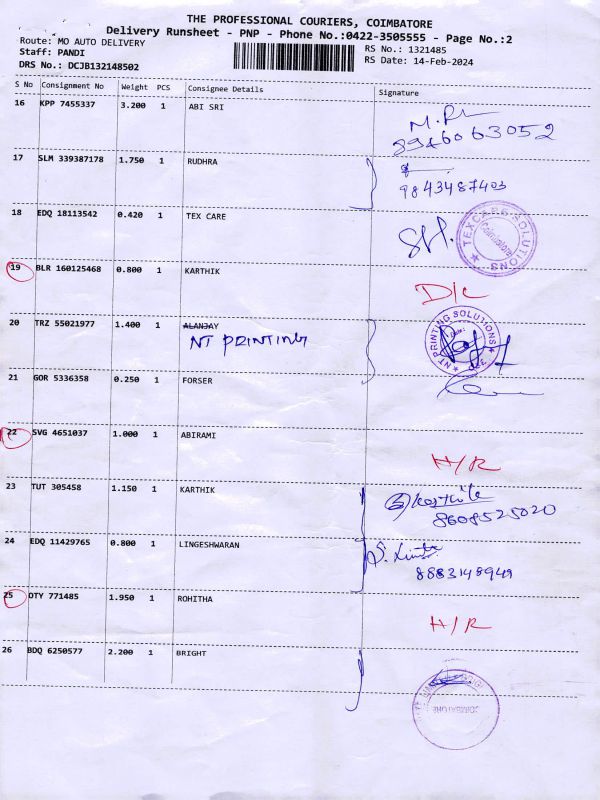 THE PROFESSIONAL COURIERS, COIMBATORE
Delivery Runsheet - PNP - Phone No.:0422-3505555 - Page No.:2
Route: MO AUTO DELIVERY RS No.: 1321485
Staff: PANDI RS Date: 14-Feb-2024
DRS No.: DCJB132148502
S No Consignment No Weight PCS Consignee Details Signature
16 KPP 7455337 3.200 1 ABI SRI
8946063052
17 SLM 339387178 1.750 1 RUDHRA
9843487403
18 EDQ 18113542 0.420 1 TEX CARE
TEXCARE SOLUTIONS
Coimbatore
19 BLR 160125468 0.800 1 KARTHIK
D/C
20 TRZ 55021977 1.400 1 ALANJAY
NT PRINTING
NT PRINTING SOLUTIONS
21 GOR 5336358 0.250 1 FORSER
22 SVG 4651037 1.000 1 ABIRAMI
H/R
23 TUT 305458 1.150 1 KARTHIK
8608525020
24 EDQ 11429765 0.800 1 LINGESHWARAN
8883148949
25 OTY 771485 1.950 1 ROHITHA
H/R
26 BDQ 6250577 2.200 1 BRIGHT